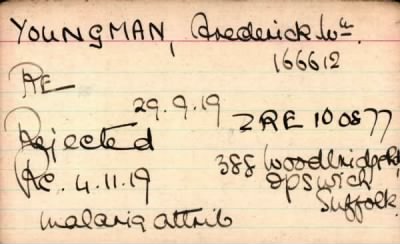 YOUNGMAN, Frederick Wm.
166612
RE
29.9.19
2RE 10087
Rejected
388 Woodbridge Rd,
RC. 4.11.19
Ipswich,
Suffolk.
malaria attrib